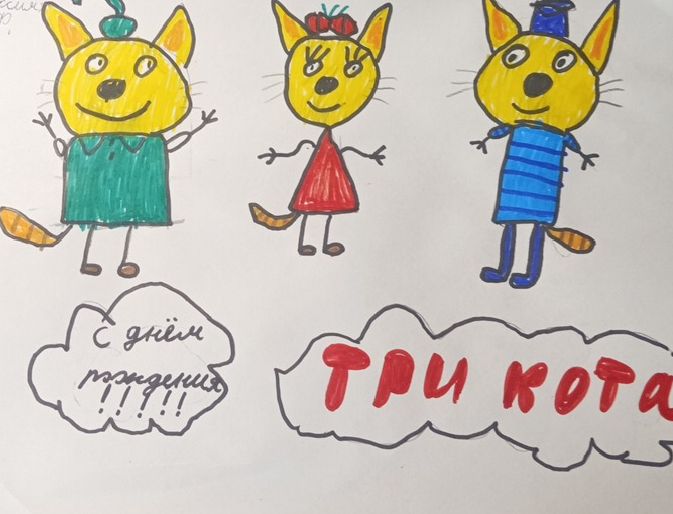 с днём
рождения
!!!!!
ТРИ КОТА